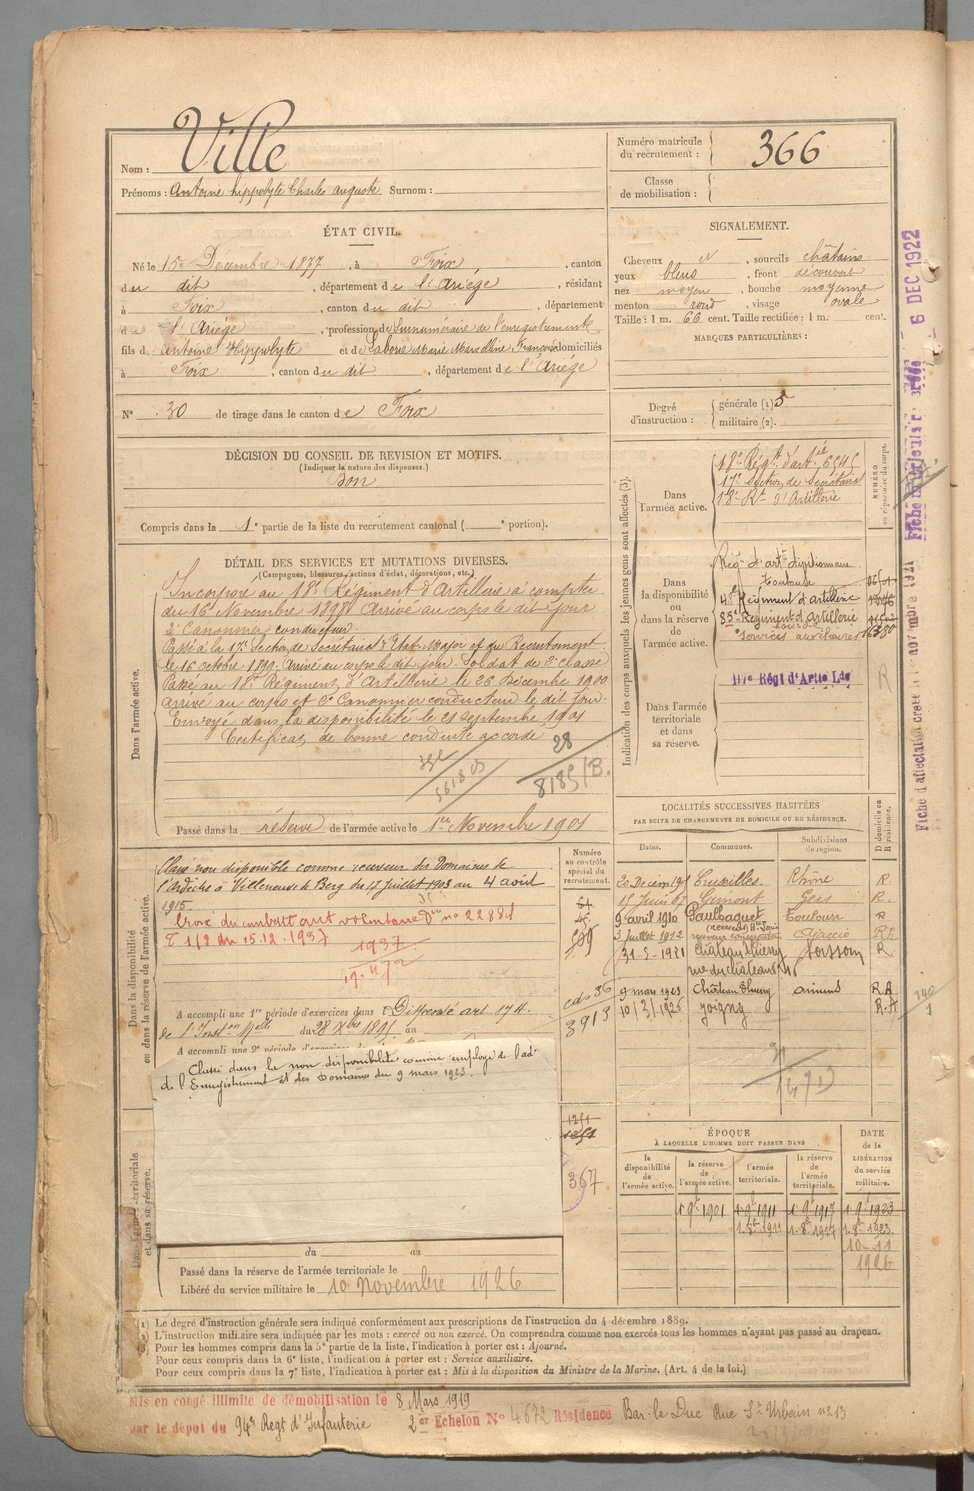 Nom : Ville
Prénoms : Antoine hippolyte Charles auguste Surnom :
Numéro matricule du recrutement : 366
Classe de mobilisation :
ÉTAT CIVIL.
Né le 15 Décembre 1877, à Foix, canton
du dit, département de l'Ariége, résidant
à Foix, canton du dit, département
de l'Ariége, profession de Surnuméraire de l'enregistrement
fils d' Antoine Hippolyte et de Laborie Marie domiciliés
à Foix, canton du dit, département de l'Ariége
N° 30 de tirage dans le canton de Foix
SIGNALEMENT.
Cheveux , sourcils châtains
yeux bleus, front découvert
nez moyen, bouche moyenne
menton rond, visage ovale
Taille : 1 m. 66 cent. Taille rectifiée : 1 m. cent.
MARQUES PARTICULIÈRES :
Degré d'instruction : générale (1) 5
militaire (2).
DÉCISION DU CONSEIL DE REVISION ET MOTIFS.
(Indiquer la nature des dispenses.)
Bon
Compris dans la 1e partie de la liste du recrutement cantonal ( e portion).
DÉTAIL DES SERVICES ET MUTATIONS DIVERSES.
(Campagnes, blessures, actions d'éclat, décorations, etc.)
Dans l'armée active.
Incorporé au 18e Régiment d'Artillerie à compter
du 16 Novembre 1898 Arrivé au corps le dit jour
2e Canonnier conducteur.
Passé à la 17e Section de Secrétaires d'Etat-Major et du Recrutement
le 16 octobre 1899. Arrivé au corps le dit jour. Soldat de 2e classe
Passé au 18e Régiment d'Artillerie le 26 Décembre 1900
arrivé au corps et 2e Canonnier conducteur le dit jour.
Envoyé dans la disponibilité le 21 Septembre 1901
Certificat de bonne conduite accordé
28
8185/B.
Passé dans la réserve de l'armée active le 1er Novembre 1901
Indication des corps auxquels les jeunes gens sont affectés (3).
NUMÉRO au répertoire du corps.
Dans l'armée active.
18e Régt d'artie 6545
17e Section de Secrétaires
18e Rt d'Artillerie
Dans la disponibilité ou dans la réserve de l'armée active.
Régt d'art. divisionnaire
Toulouse
Régiment d'artillerie
85e Régiment d'artillerie
services auxiliaires
R
117e Régt d'Artie Lde
Dans l'armée territoriale et dans sa réserve.
Fiche d'affectation créée le 1er novembre 1921
6 DEC 1922
LOCALITÉS SUCCESSIVES HABITÉES
PAR SUITE DE CHANGEMENTS DE DOMICILE OU DE RÉSIDENCE.
Dates. Communes. Subdivisions de région. D domicile ou R résidence.
Rhône R.
15 Juin 07 Gimont Gers R.
9 avril 1910 Toulouse R
3 Juillet 1912 Ajaccio
31-5-1921 Château Thierry Soissons R
rue du château
9 mars 1923 Château Thierry R A
10/3/1926 Joigny R.A
140
1
Dans la disponibilité ou dans la réserve de l'armée active.
Numéro au contrôle spécial du recrutement.
Classé non disponible comme receveur des Domaines de
l'ardèche à Villeneuve de Berg du 17 Juillet 1903 au 4 août
1915
Croix du combattant volontaire
15.12.1937
1937
A accompli une 1re période d'exercices dans l Dispensé art. 174
de l'Inston Melle du 28 Xbre 1895 au
cdo 36
3913
Classé dans la non disponibilité comme employé de l'adon
de l'Enregistrement et des Domaines du 9 mars 1923
Dans l'armée territoriale et dans sa réserve.
1251
367
du au
Passé dans la réserve de l'armée territoriale le
Libéré du service militaire le 10 Novembre 1926
ÉPOQUE
À LAQUELLE L'HOMME DOIT PASSER DANS
la disponibilité de l'armée active. la réserve de l'armée active. l'armée territoriale. la réserve de l'armée territoriale.
DATE de la LIBÉRATION du service militaire.
1 9e 1901 1 9e 1911 1 9e 1917 1 9e 1923
1-8e 1911 1-8e 1917 1-8e 1923
10-11
1926
(1) Le degré d'instruction générale sera indiqué conformément aux prescriptions de l'instruction du 4 décembre 1889.
(2) L'instruction militaire sera indiquée par les mots : exercé ou non exercé. On comprendra comme non exercés tous les hommes n'ayant pas passé au drapeau.
(3) Pour les hommes compris dans la 5e partie de la liste, l'indication à porter est : Ajourné.
Pour ceux compris dans la 6e liste, l'indication à porter est : Service auxiliaire.
Pour ceux compris dans la 7e liste, l'indication à porter est : Mis à la disposition du Ministre de la Marine. (Art. 4 de la loi.)
Mis en congé illimité de démobilisation le 8 Mars 1919
par le dépôt du 94e Regt d'Infanterie 2er Echelon N° 4672 Résidence Bar-le-Duc Rue St Urbain n° 13